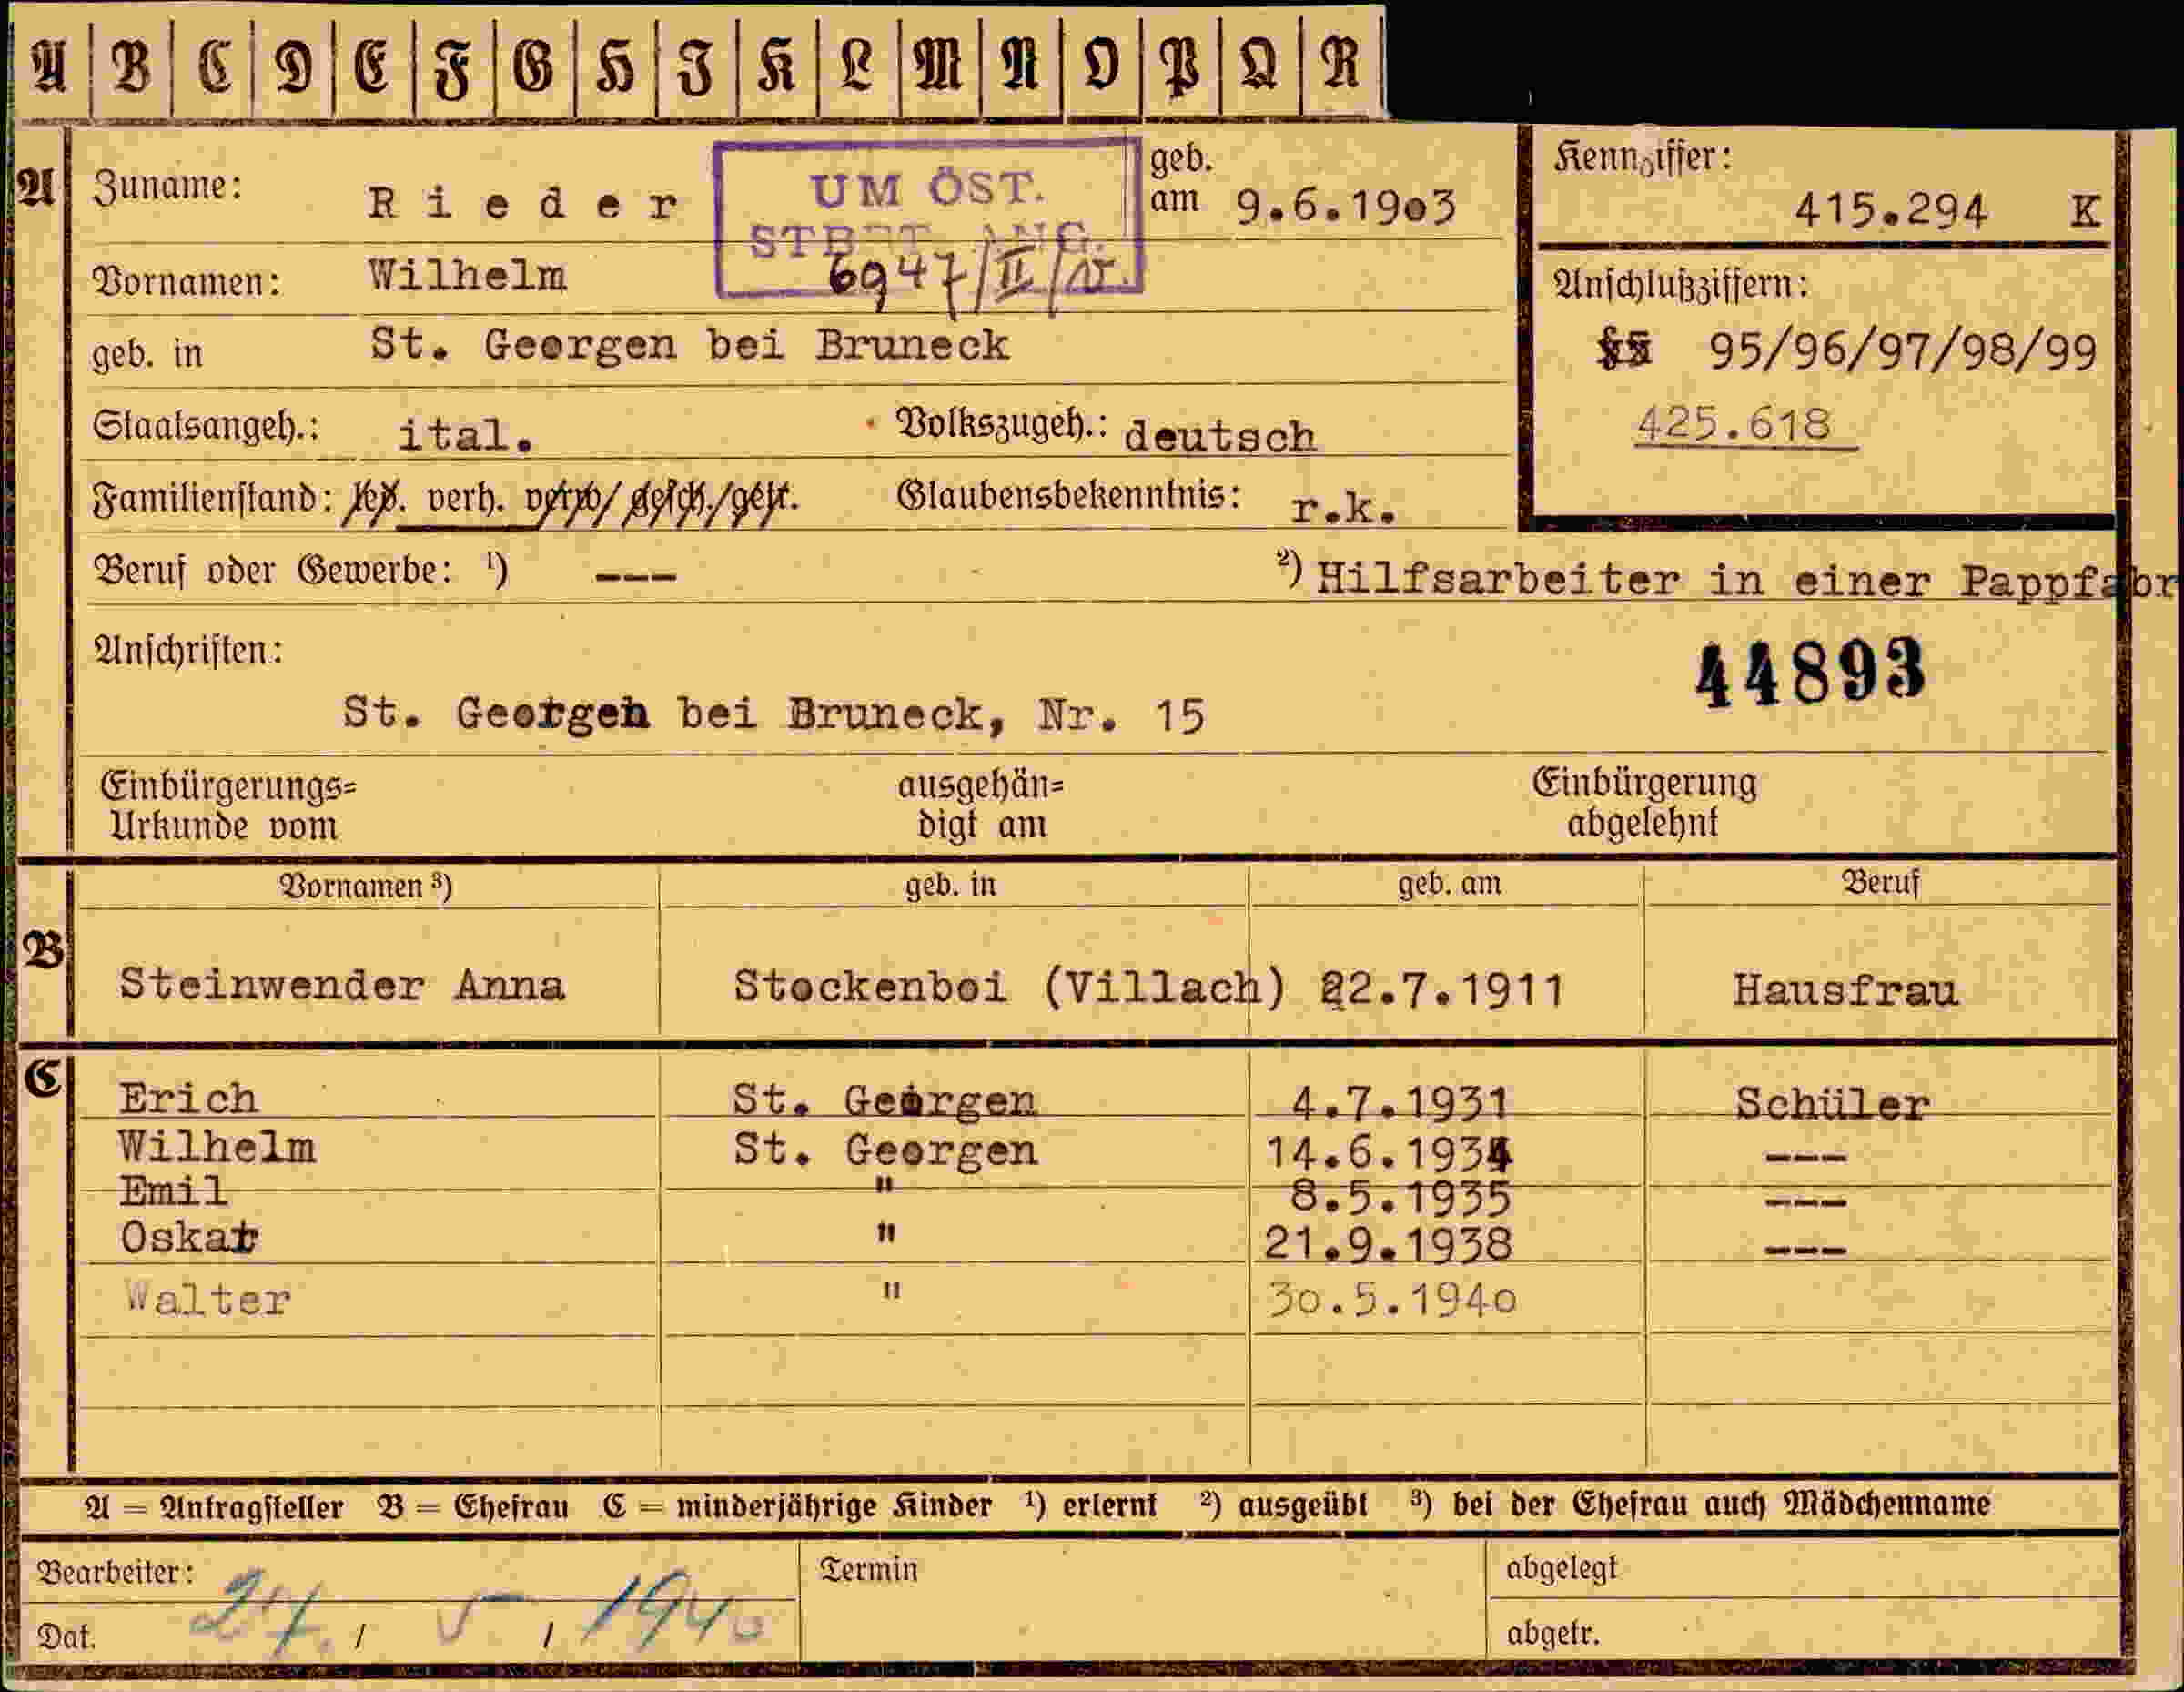 A B C D E F G H I K L M N O P Q R
A Zuname: Rieder
UM ÖST.
geb. am 9.6.1903
Kennziffer: 415.294 K
Vornamen: Wilhelm
6947/II/
Anschlußziffern:
95/96/97/98/99
425.618
geb. in St. Georgen bei Bruneck
Staatsangeh.: ital. Volkszugeh.: deutsch
Familienstand: led. verh. verw/ gesch./getr. Glaubensbekenntnis: r.k.
Beruf oder Gewerbe: ¹) --- ²) Hilfsarbeiter in einer Pappfabr
Anschriften:
44893
St. Georgen bei Bruneck, Nr. 15
Einbürgerungs= ausgehän= Einbürgerung
Urkunde vom digt am abgelehnt
Vornamen ³) geb. in geb. am Beruf
B Steinwender Anna Stockenboi (Villach) 22.7.1911 Hausfrau
C Erich St. Georgen 4.7.1931 Schüler
Wilhelm St. Georgen 14.6.1934 ---
Emil " 8.5.1935 ---
Oskar " 21.9.1938 ---
Walter " 30.5.1940
A = Antragsteller B = Ehefrau C = minderjährige Kinder ¹) erlernt ²) ausgeübt ³) bei der Ehefrau auch Mädchenname
Bearbeiter: Termin abgelegt
Dat. 27. / 5 / 1940 abgetr.